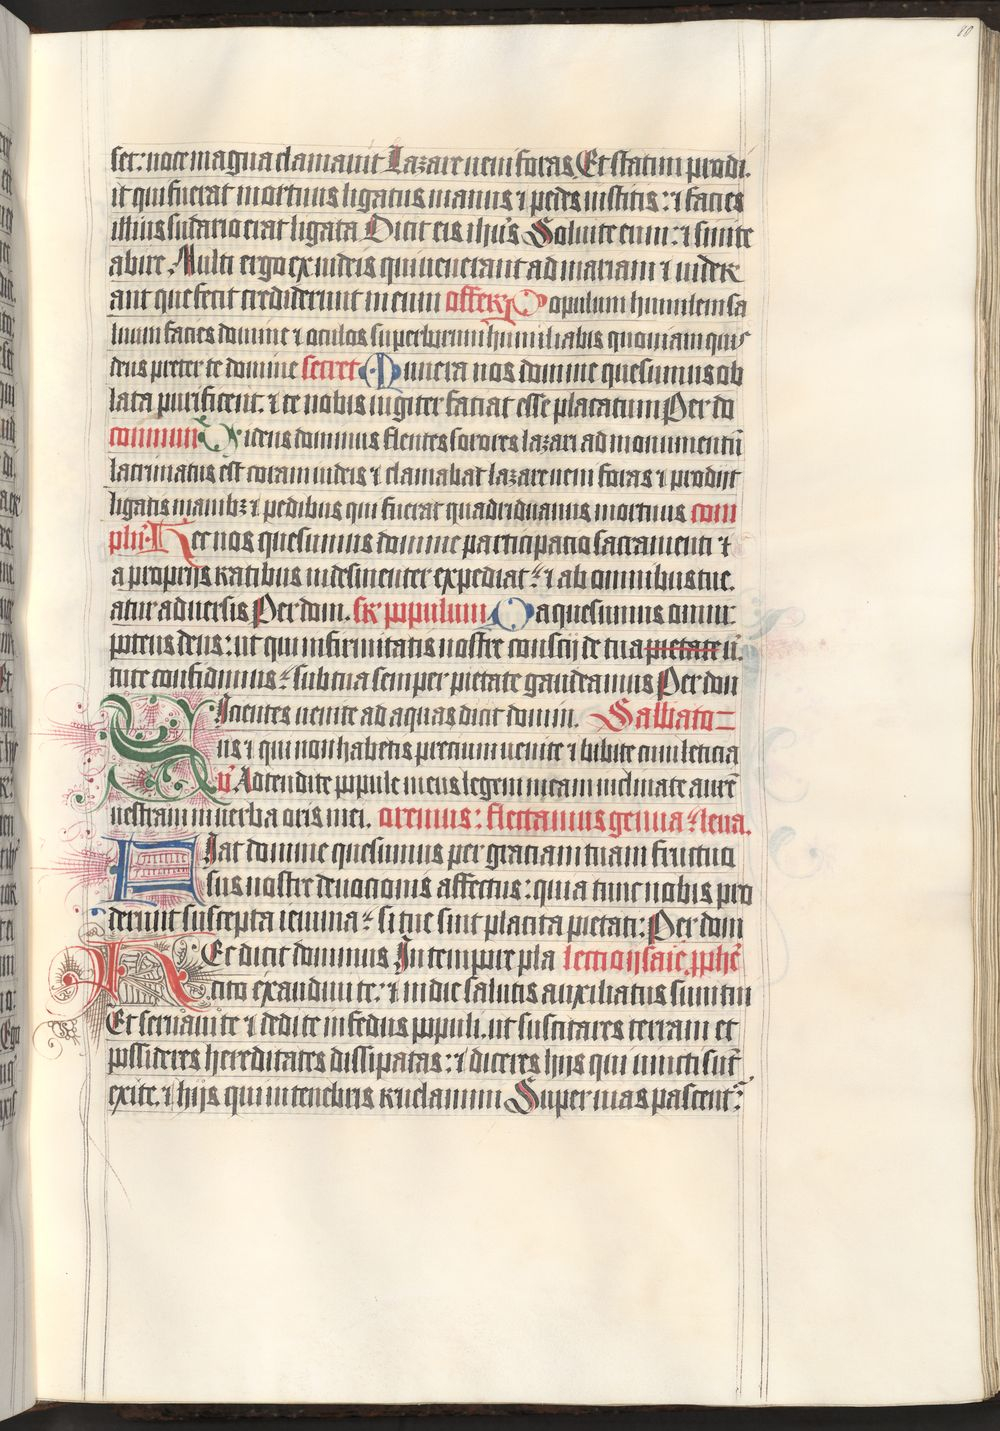 60
set: voce magna clamauit Lazare ueni foras Et statim prodi.
it qui fuerat mortuus ligatus manus ⁊ pedes institis: ⁊ facies
illius sudario erat ligata Dicit eis ihus Soluite eum: ⁊ sinite
abire. Multi ergo ex iudeis qui uenerant ad mariam ⁊ uider
ant que fecit crediderunt in eum offert Populum humilem sa
luum facies domine ⁊ oculos superborum humiliabis quoniam quis
deus preter te domine secret Munera nos domine quesumus ob
lata purificent. ⁊ te nobis iugiter faciat esse placatum Per do
commun Videns dominus flentes sorores lazari ad monumentū
lacrimatus est coram iudeis ⁊ clamabat lazare ueni foras ⁊ prodiit
ligatis manibꝫ ⁊ pedibus qui fuerat quadriduanus mortuus com
plēt. Hec nos quesumus domine participatio sacramenti ⁊
a propriis reatibus indesinenter expediat: ⁊ ab omnibus tue.
atur aduersis Per dom. sr populum Da quesumus omni
potens deus: ut qui infirmitatis nostre conscij de tua pietate uir
tute confidimus: sub tua semper pietate gaudeamus Per dom
Sicientes uenite ad aquas dicit domin. Sabbato
us ⁊ qui non habetis precium uenite ⁊ bibite cum leticia
v̄ Adtendite popule meus legem meam inclinate aurē
uestram in uerba oris mei. oremus: flectamus genua: leua.
Fiat domine quesumus per gratiam tuam fructuo
sus nostre deuocionis affectus: quia tunc nobis pro
derunt suscepta ieiunia: si tue sint placita pietati: Per dom
Hec dicit dominus In tempore pla lectio ysaie pphē
cito exaudiui te: ⁊ in die salutis auxiliatus sum tui
Et seruaui te ⁊ dedi te in fedus populi. ut suscitares terram et
possideres hereditates dissipatas: ⁊ diceres hijs qui uincti sūt
exite. ⁊ hijs qui in tenebris reuelamini Super uias pascent: